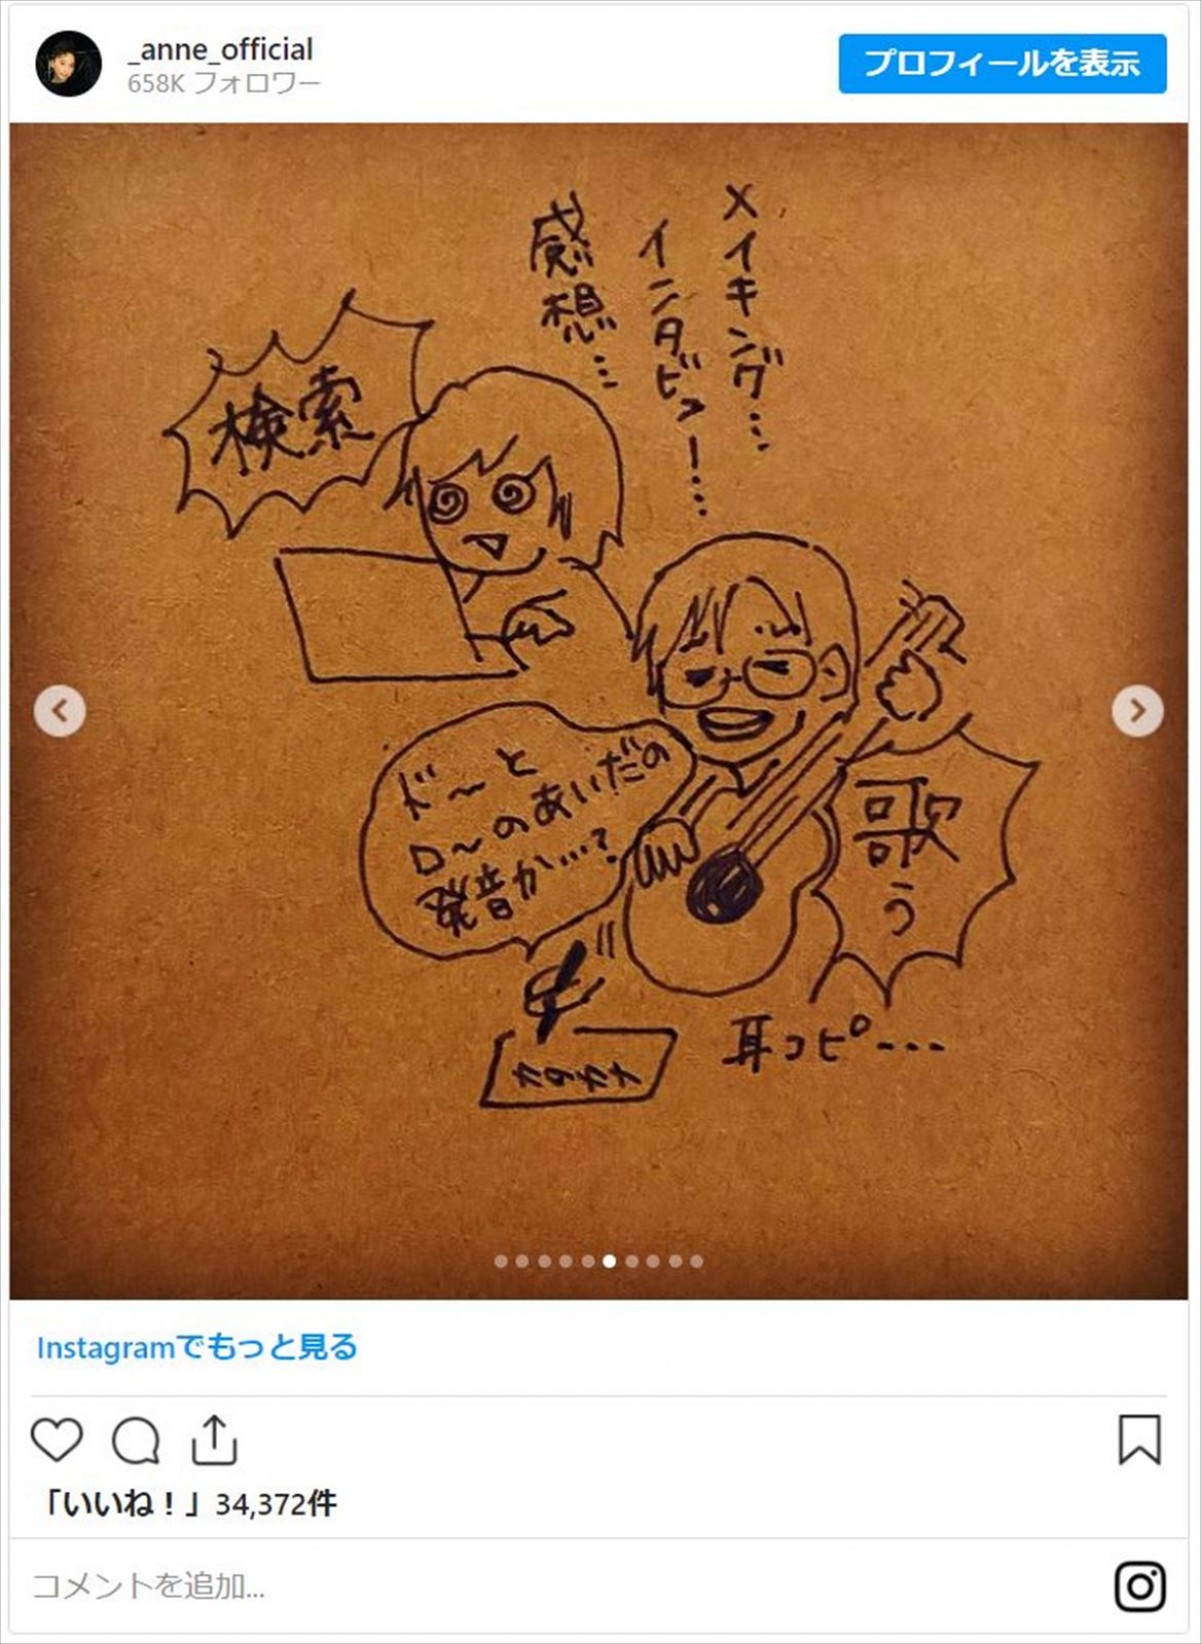 _anne_official
658K フォロワー
プロフィールを表示
メイキング…
インタビュー…
感想…
検索
ド〜と
ロ〜のあいだの
発音か…?
歌う
耳コピ…
カタカナ
Instagramでもっと見る
「いいね！」34,372件
コメントを追加...